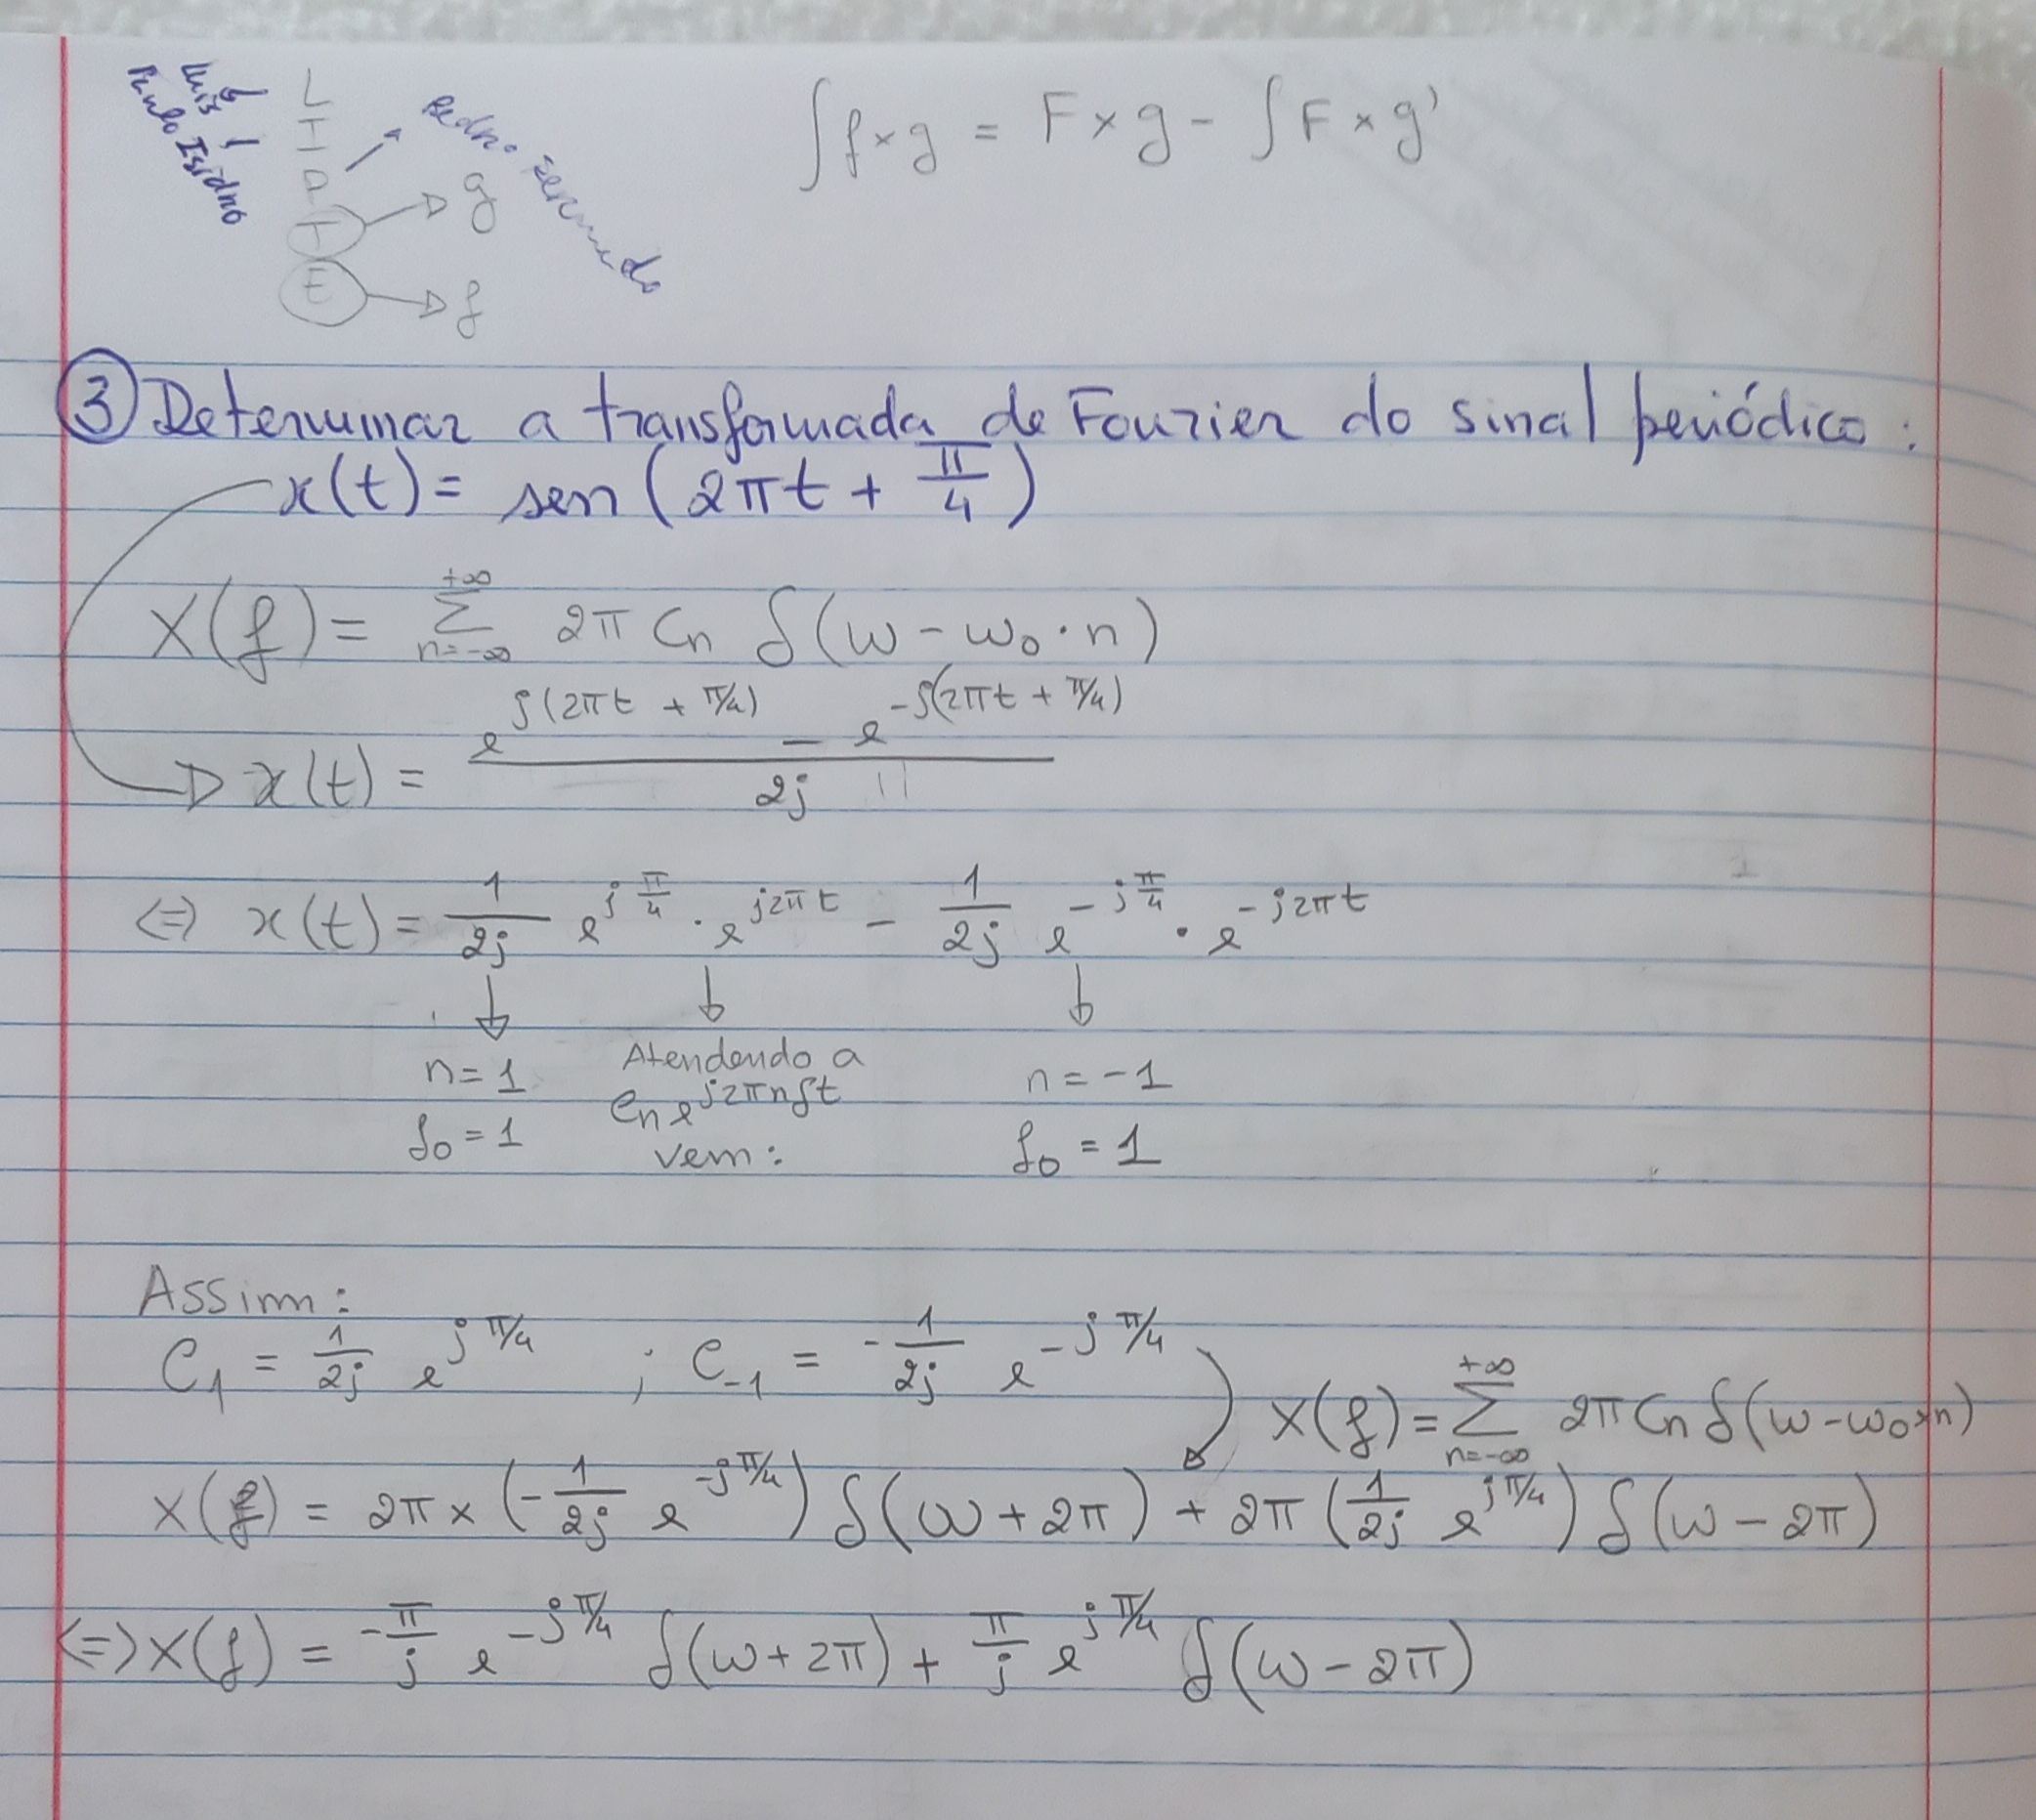 Luis
Paulo Isidro
L
I
P
T → g
E → f
Pedro
∫f×g = F×g - ∫F×g'
③ Determinar a transformada de Fourier do sinal periódico:
x(t) = sen(2πt + π/4)
X(f) = Σ_{n=-∞}^{+∞} 2π Cn δ(w - w₀·n)
x(t) = (e^{j(2πt + π/4)} - e^{-j(2πt + π/4)}) / 2j
⇔ x(t) = 1/2j e^{jπ/4} · e^{j2πt} - 1/2j e^{-jπ/4} · e^{-j2πt}
↓ ↓ ↓
n=1 Atendendo a n=-1
f₀=1 Cn e^{j2πnft} f₀=1
vem:
Assim:
C₁ = 1/2j e^{jπ/4} ; C₋₁ = -1/2j e^{-jπ/4}
X(f) = Σ_{n=-∞}^{+∞} 2π Cn δ(w - w₀×n)
X(f) = 2π × (-1/2j e^{-jπ/4}) δ(w + 2π) + 2π (1/2j e^{jπ/4}) δ(w - 2π)
⇔ X(f) = -π/j e^{-jπ/4} δ(w + 2π) + π/j e^{jπ/4} δ(w - 2π)